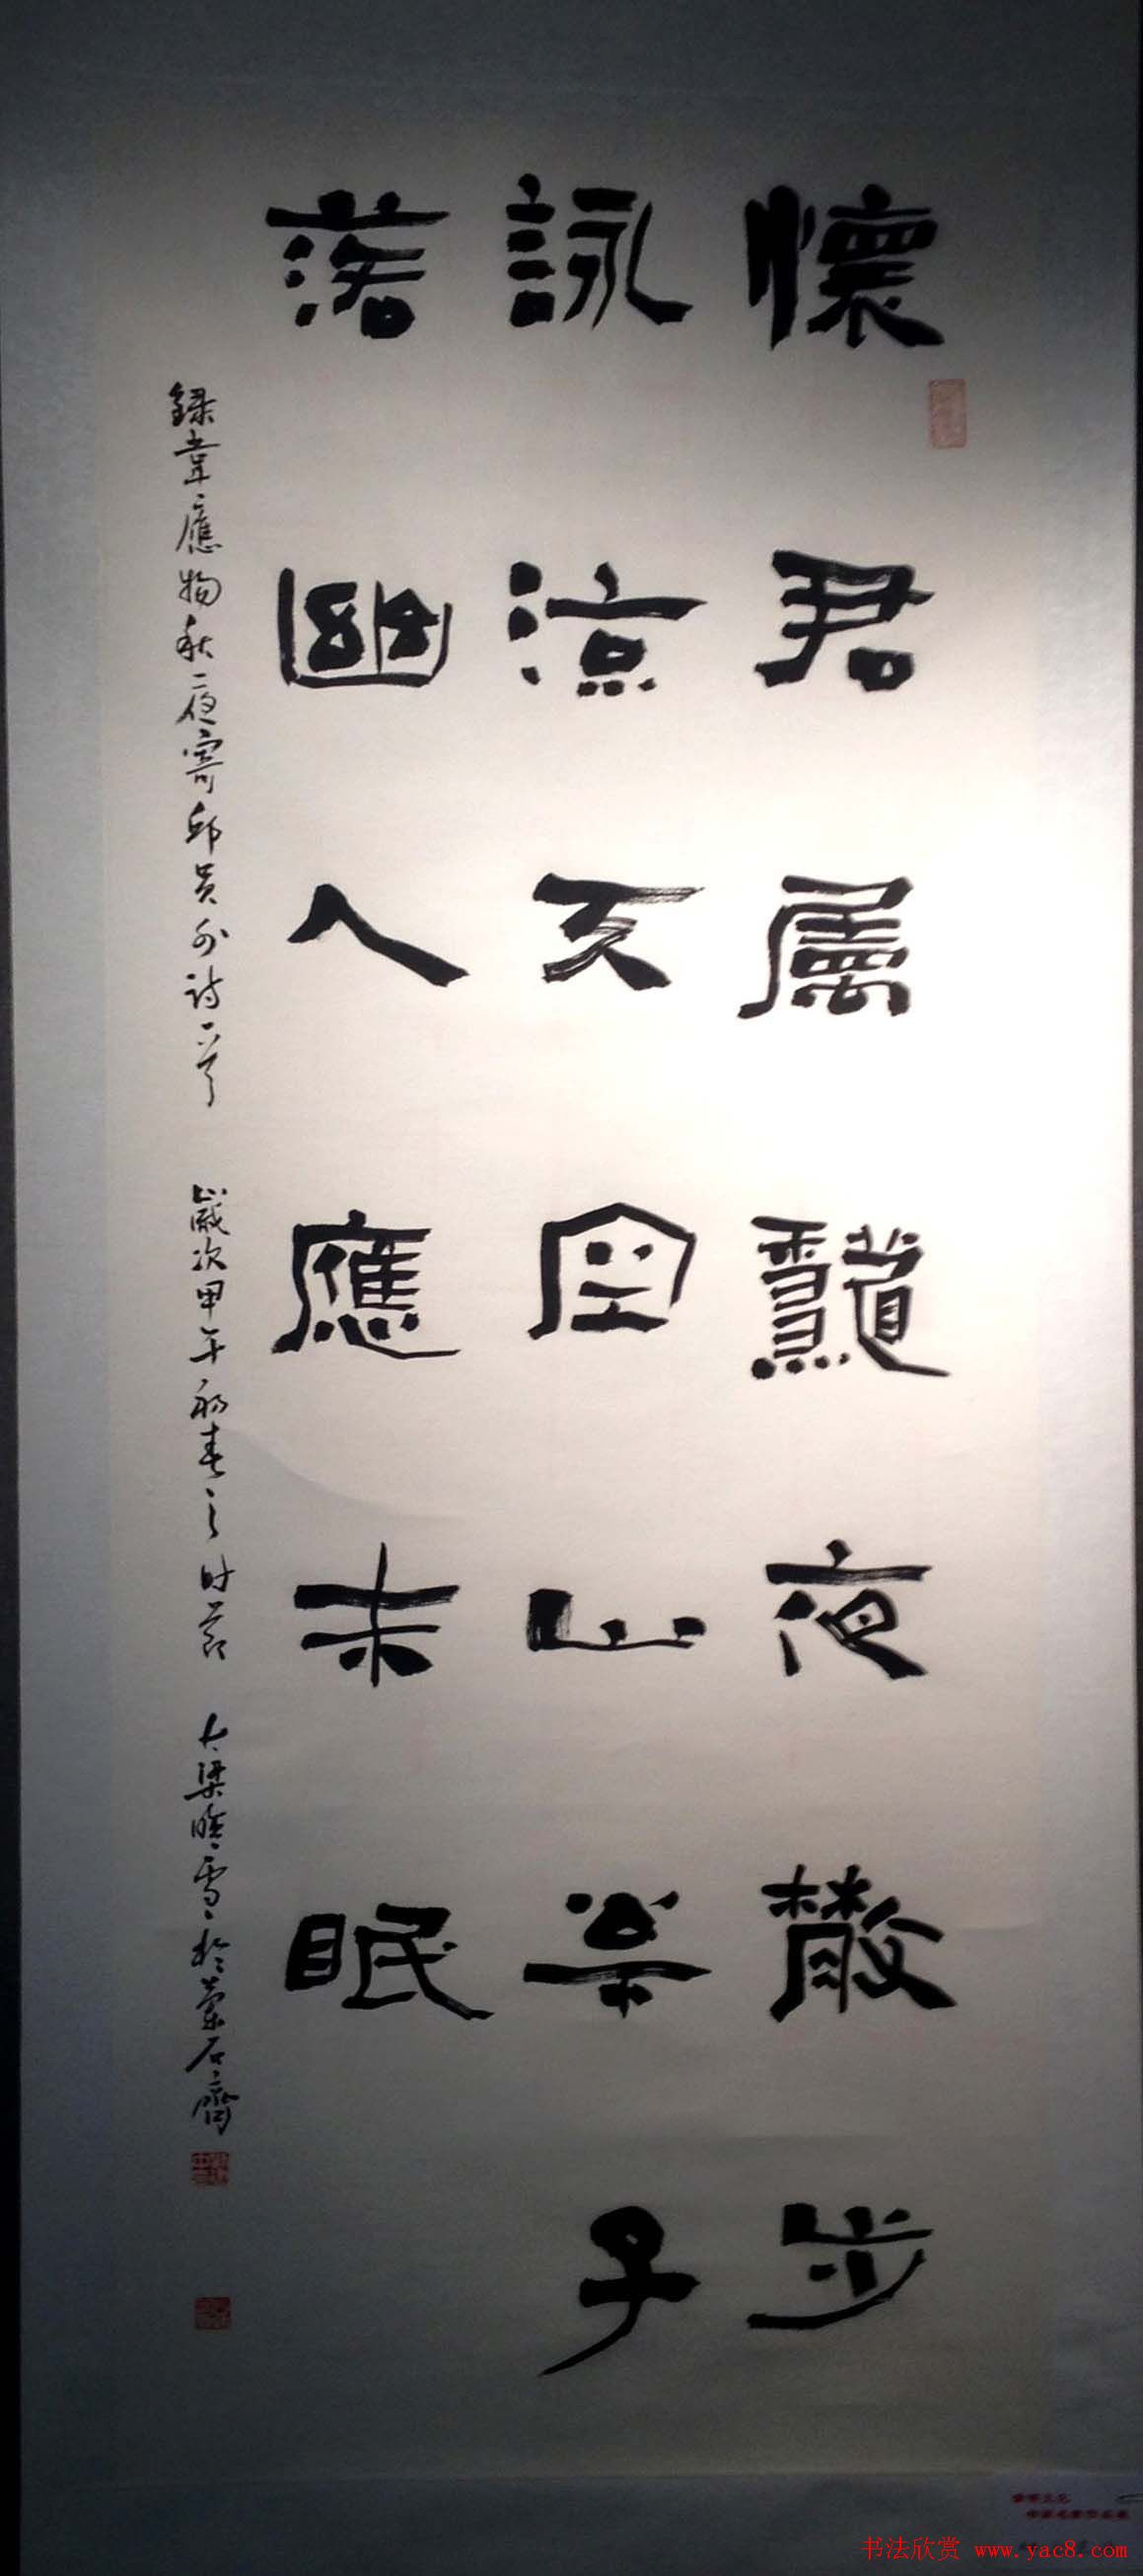 懷君屬龝夜散步
詠涼天空山枀子
落幽人應未眠
錄韋應物秋夜寄邱員外詩一首 歲次甲午初春之時節 大梁雪於石齋
书法欣赏 www.yac8.com